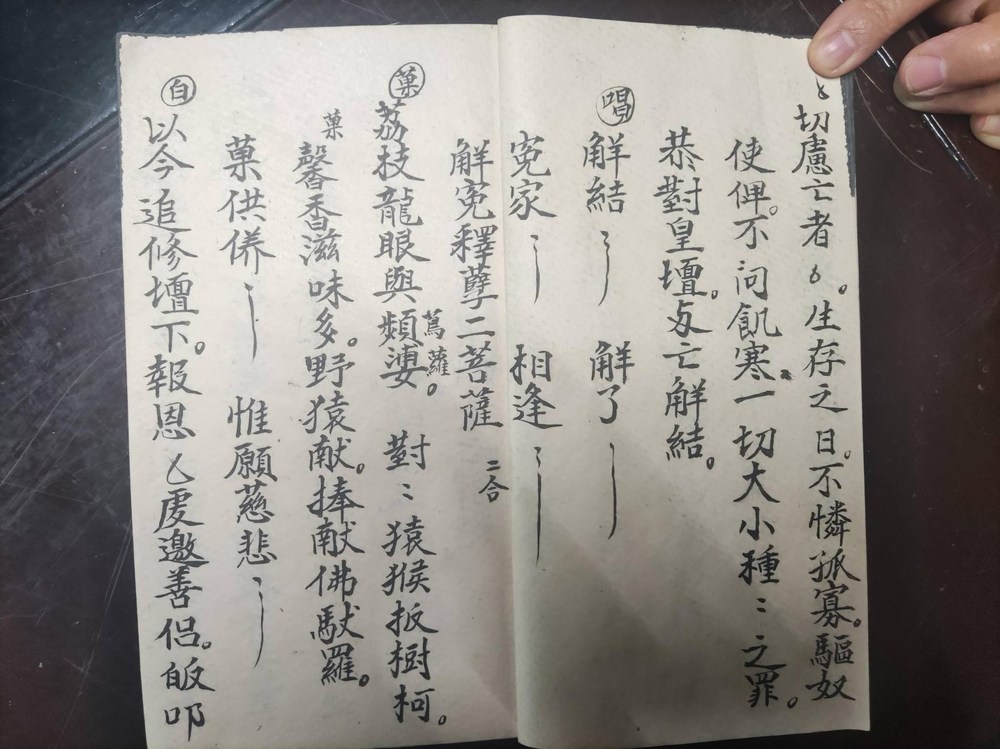 切慮亡者。生存之日。不憐孤寡。驅奴
使俾。不问飢寒。一切大小種〻之罪。
恭對皇壇。与亡解結。
唱
解結 解了
冤家 相逢
解冤釋孽二菩薩 二合
菓
荔枝龍眼與頻婆。蔦蘿 對〻猿猴扳樹柯。
菓
馨香滋味多。野猿献。捧献佛馱羅。
菓供侨 惟願慈悲
白
以今追修壇下。報恩 虔邀善侣。皈叩